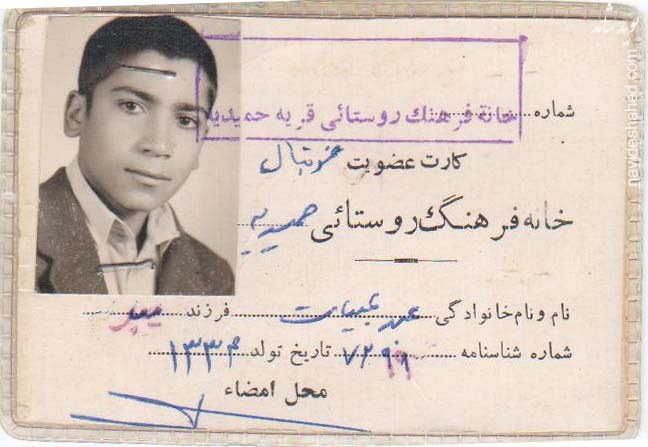 نوید شاهد
navideshahed.com
خانه فرهنگ روستائی قریه حمیدیه
شماره
کارت عضویت فوتبال
خانه فرهنگ روستائی حمیدیه
نام و نام خانوادگی فرزند
شماره شناسنامه تاریخ تولد ۱۳۳۴
محل امضاء